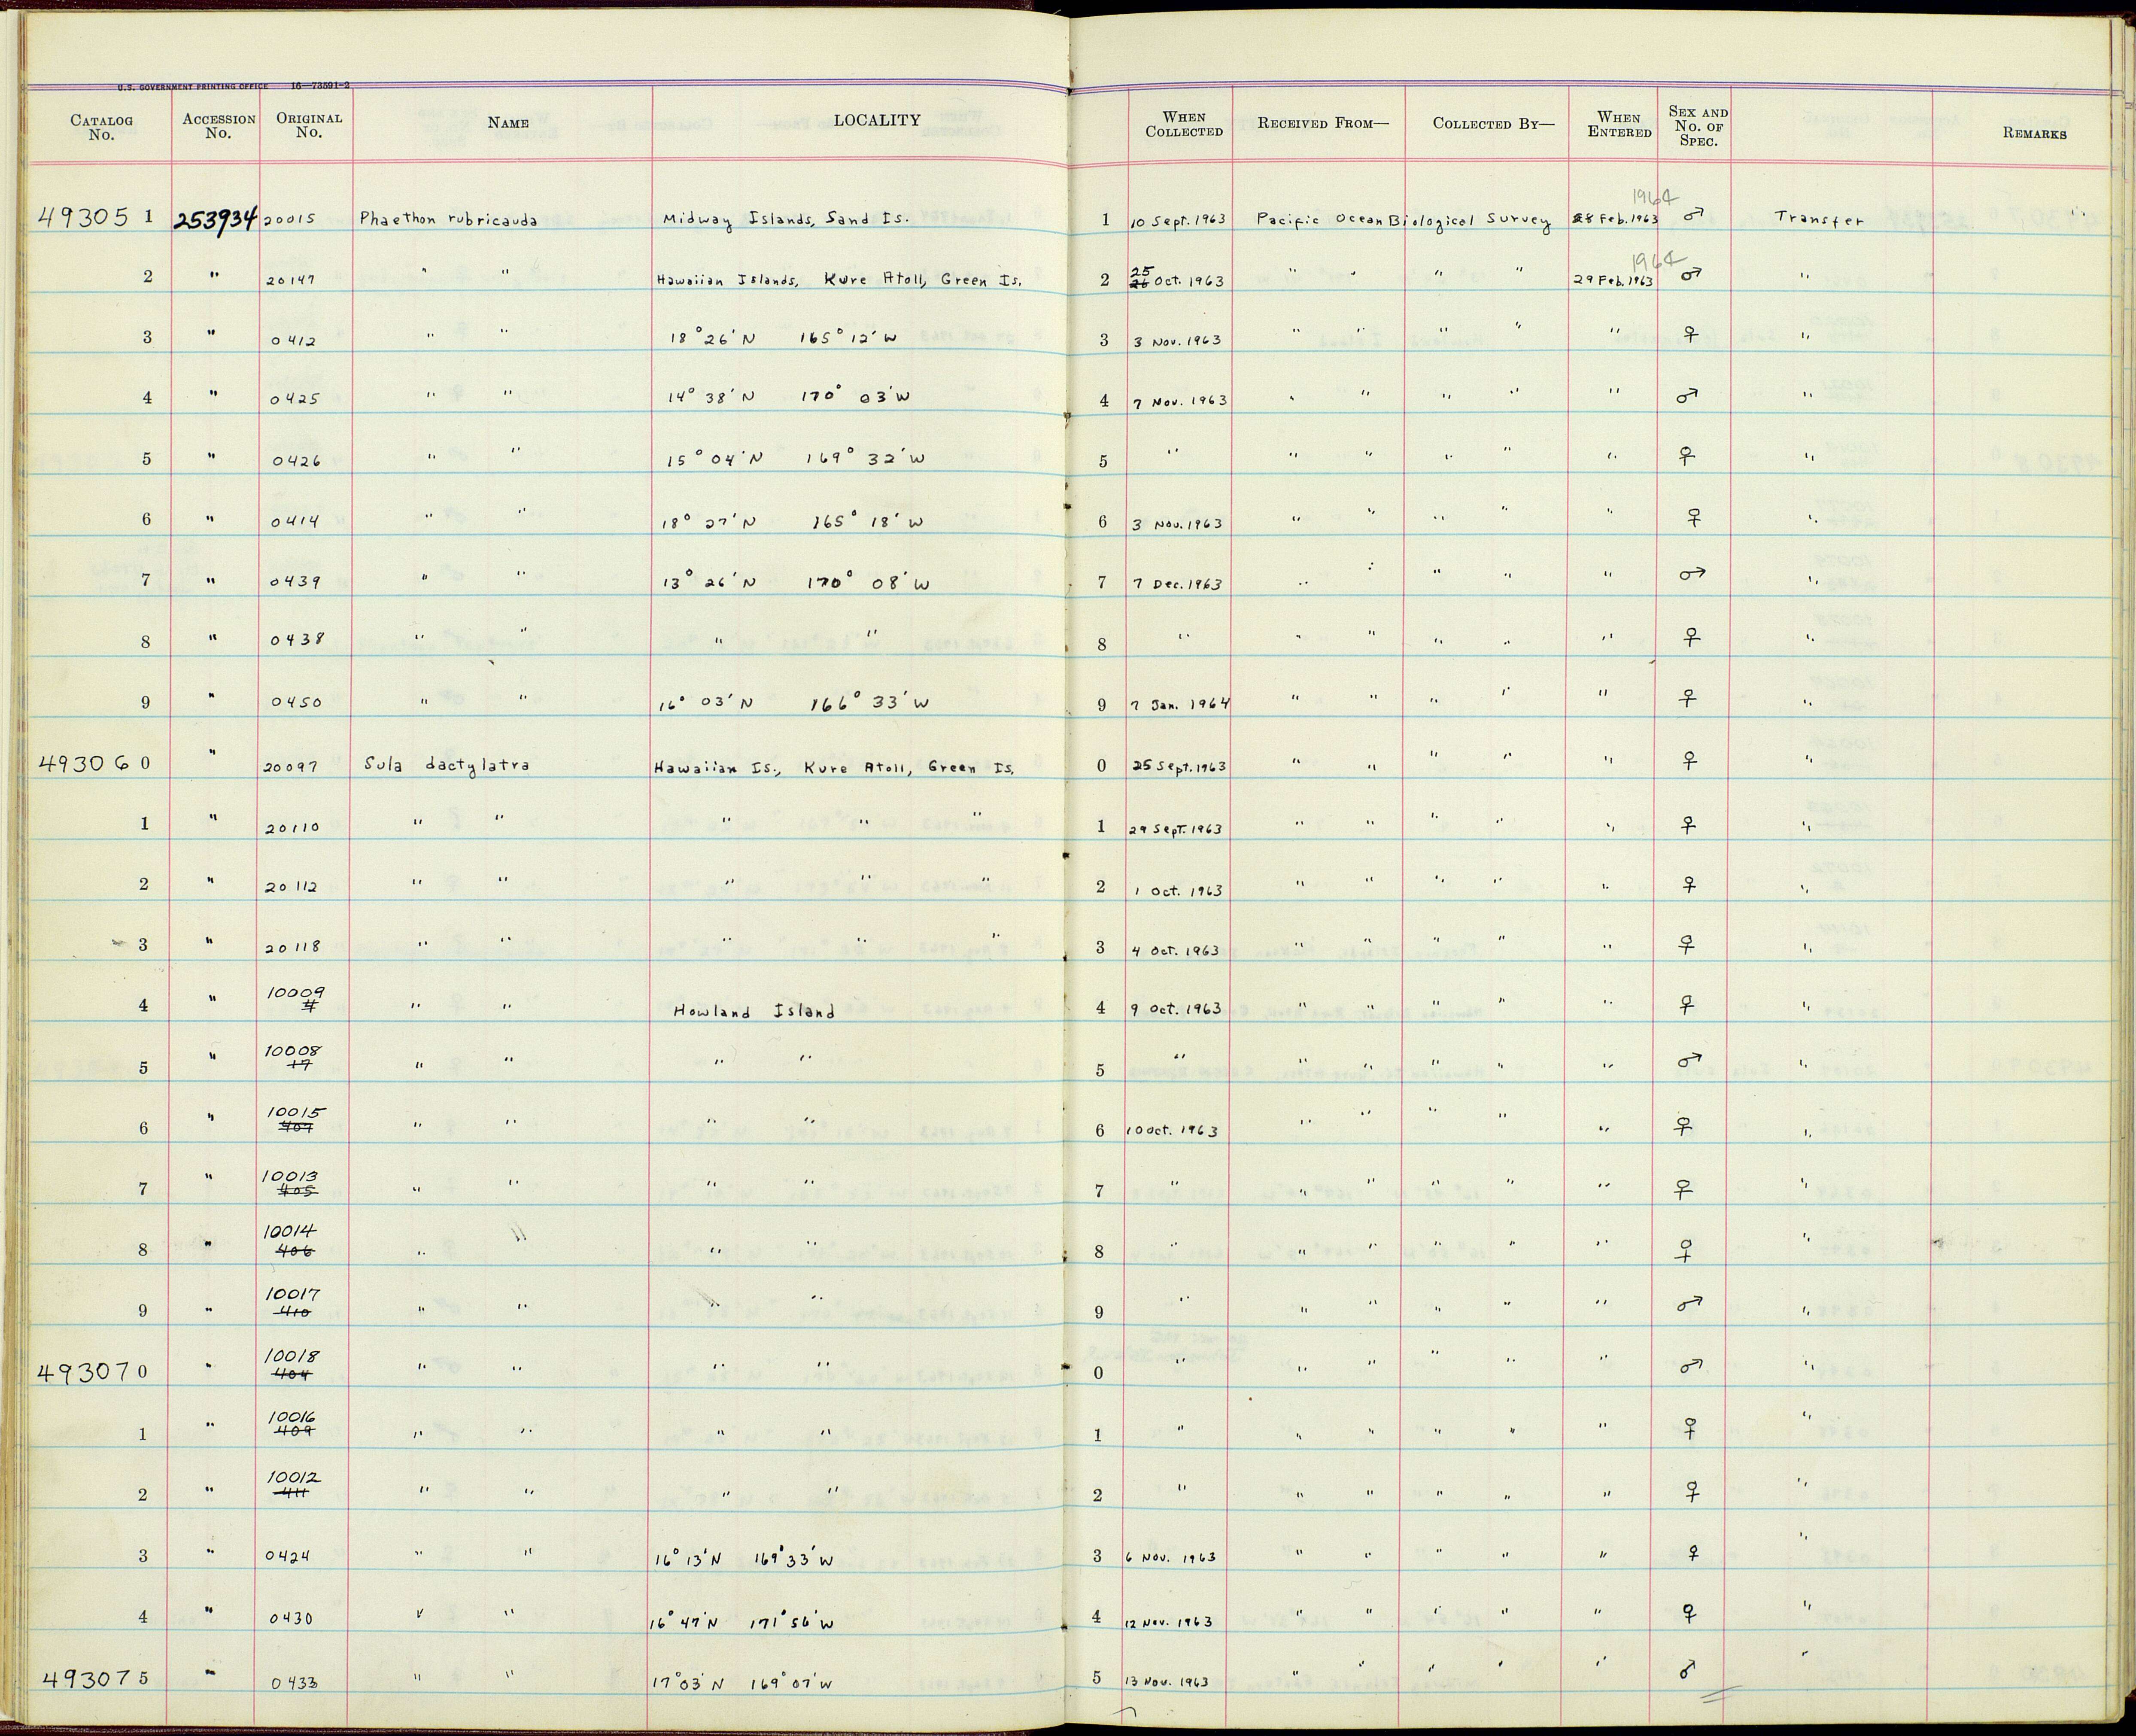 U.S. GOVERNMENT PRINTING OFFICE 16—73591-2
CATALOG No. ACCESSION No. ORIGINAL No. NAME LOCALITY WHEN COLLECTED RECEIVED FROM— COLLECTED BY— WHEN ENTERED SEX AND No. OF SPEC. REMARKS
1964
49305 1 253934 20015 Phaethon rubricauda Midway Islands, Sand Is. 1 10 Sept. 1963 Pacific Ocean Biological Survey 28 Feb. 1963 ♂ Transfer
1964
2 " 20147 " " Hawaiian Islands, Kure Atoll, Green Is. 2 25 26 Oct. 1963 " " " " 29 Feb. 1963 ♂ "
3 " 0412 " " 18° 26' N 165° 12' W 3 3 Nov. 1963 " " " " " ♀ "
4 " 0425 " " 14° 38' N 170° 03' W 4 7 Nov. 1963 " " " " " ♂ "
5 " 0426 " " 15° 04' N 169° 32' W 5 " " " " " " ♀ "
6 " 0414 " " 18° 27' N 165° 18' W 6 3 Nov. 1963 " " " " " ♀ "
7 " 0439 " " 13° 26' N 170° 08' W 7 7 Dec. 1963 " " " " " ♂ "
8 " 0438 " " " " 8 " " " " " " ♀ "
9 " 0450 " " 16° 03' N 166° 33' W 9 7 Jan. 1964 " " " " " ♀ "
49306 0 " 20097 Sula dactylatra Hawaiian Is., Kure Atoll, Green Is. 0 25 Sept. 1963 " " " " " ♀ "
1 " 20110 " " " " " 1 29 Sept. 1963 " " " " " ♀ "
2 " 20112 " " " " " 2 1 Oct. 1963 " " " " " ♀ "
3 " 20118 " " " " " 3 4 Oct. 1963 " " " " " ♀ "
4 " 10009 " " Howland Island 4 9 Oct. 1963 " " " " " ♀ "
5 " 10008 17 " " " " 5 " " " " " " ♂ "
6 " 10015 407 " " " " 6 10 Oct. 1963 " " " " " ♀ "
7 " 10013 405 " " " " 7 " " " " " " ♀ "
8 " 10014 406 " " " " 8 " " " " " " ♀ "
9 " 10017 410 " " " " 9 " " " " " " ♂ "
49307 0 " 10018 404 " " " " 0 " " " " " " ♂ "
1 " 10016 409 " " " " 1 " " " " " " ♀ "
2 " 10012 411 " " " " 2 " " " " " " ♀ "
3 " 0424 " " 16° 13' N 169° 33' W 3 6 Nov. 1963 " " " " " ♀ "
4 " 0430 " " 16° 47' N 171° 56' W 4 12 Nov. 1963 " " " " " ♀ "
49307 5 " 0433 " " 17° 03' N 169° 07' W 5 13 Nov. 1963 " " " " " ♂ "